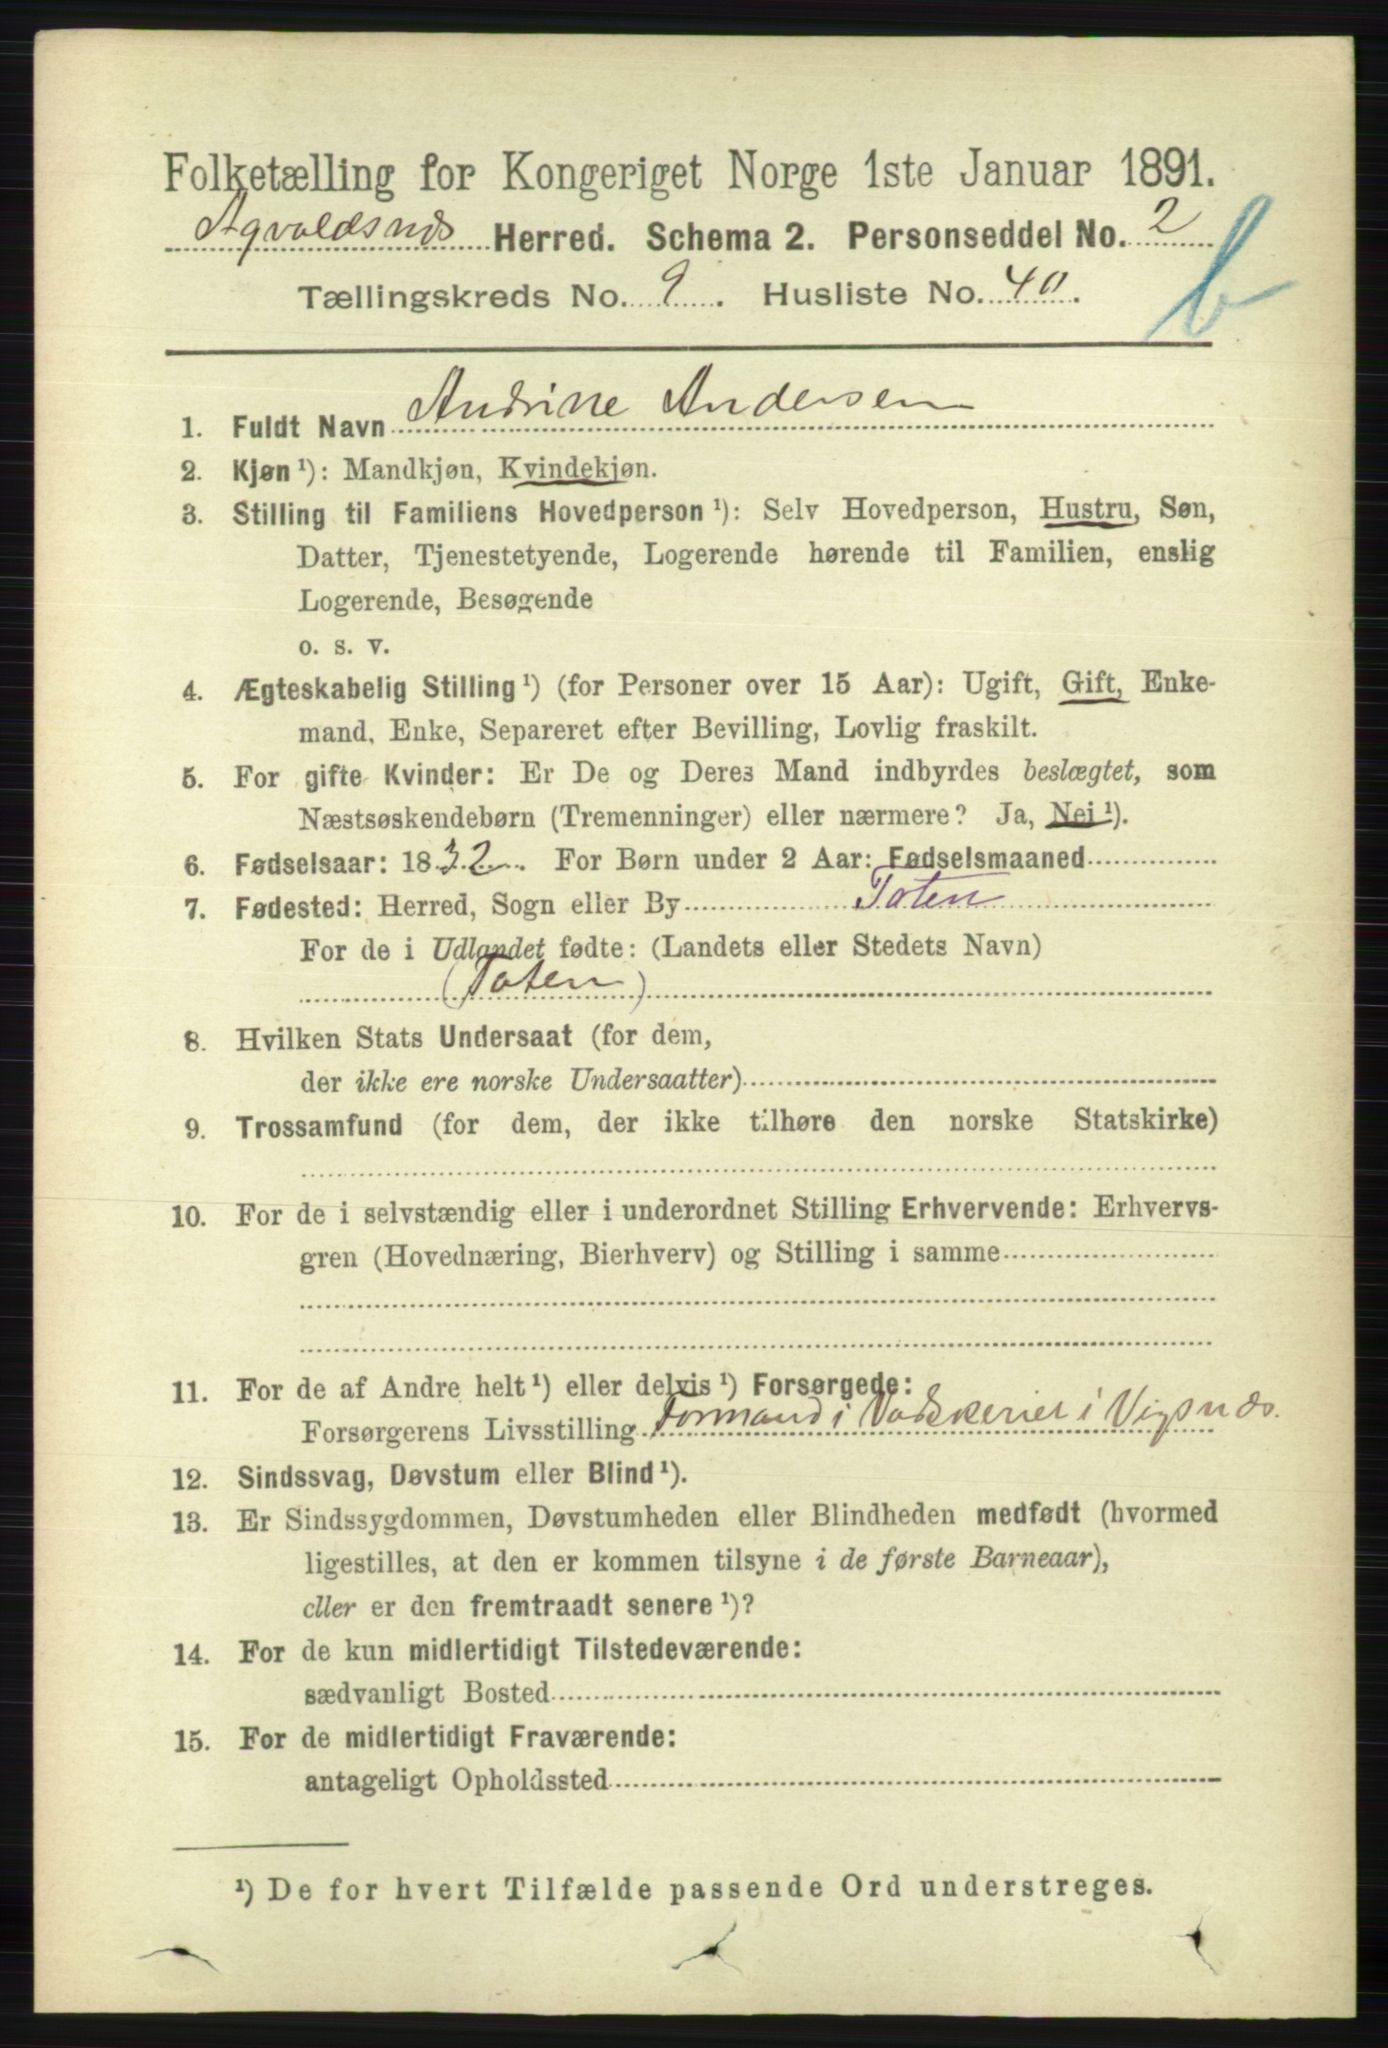 Folketælling for Kongeriget Norge 1ste Januar 1891.
Agvaldsnes Herred. Schema 2. Personseddel No. 2
Tællingskreds No. 9. Husliste No. 40.
b
1. Fuldt Navn Andrine Andersen
2. Kjøn ¹): Mandkjøn, Kvindekjøn.
3. Stilling til Familiens Hovedperson ¹): Selv Hovedperson, Hustru, Søn,
Datter, Tjenestetyende, Logerende hørende til Familien, enslig
Logerende, Besøgende
o. s. v.
4. Ægteskabelig Stilling ¹) (for Personer over 15 Aar): Ugift, Gift, Enke-
mand, Enke, Separeret efter Bevilling, Lovlig fraskilt.
5. For gifte Kvinder: Er De og Deres Mand indbyrdes beslægtet, som
Næstsøskendebørn (Tremenninger) eller nærmere? Ja, Nei ¹).
6. Fødselsaar: 1832. For Børn under 2 Aar: Fødselsmaaned
7. Fødested: Herred, Sogn eller By Toten
For de i Udlandet fødte: (Landets eller Stedets Navn)
(Toten)
8. Hvilken Stats Undersaat (for dem,
der ikke ere norske Undersaatter)
9. Trossamfund (for dem, der ikke tilhøre den norske Statskirke)
10. For de i selvstændig eller i underordnet Stilling Erhvervende: Erhvervs-
gren (Hovednæring, Bierhverv) og Stilling i samme
11. For de af Andre helt ¹) eller delvis ¹) Forsørgede:
Forsørgerens Livsstilling Formand i Vadskeriet i Vigsnæs.
12. Sindssvag, Døvstum eller Blind ¹).
13. Er Sindssygdommen, Døvstumheden eller Blindheden medfødt (hvormed
ligestilles, at den er kommen tilsyne i de første Barneaar),
eller er den fremtraadt senere ¹)?
14. For de kun midlertidigt Tilstedeværende:
sædvanligt Bosted
15. For de midlertidigt Fraværende:
antageligt Opholdssted
¹) De for hvert Tilfælde passende Ord understreges.